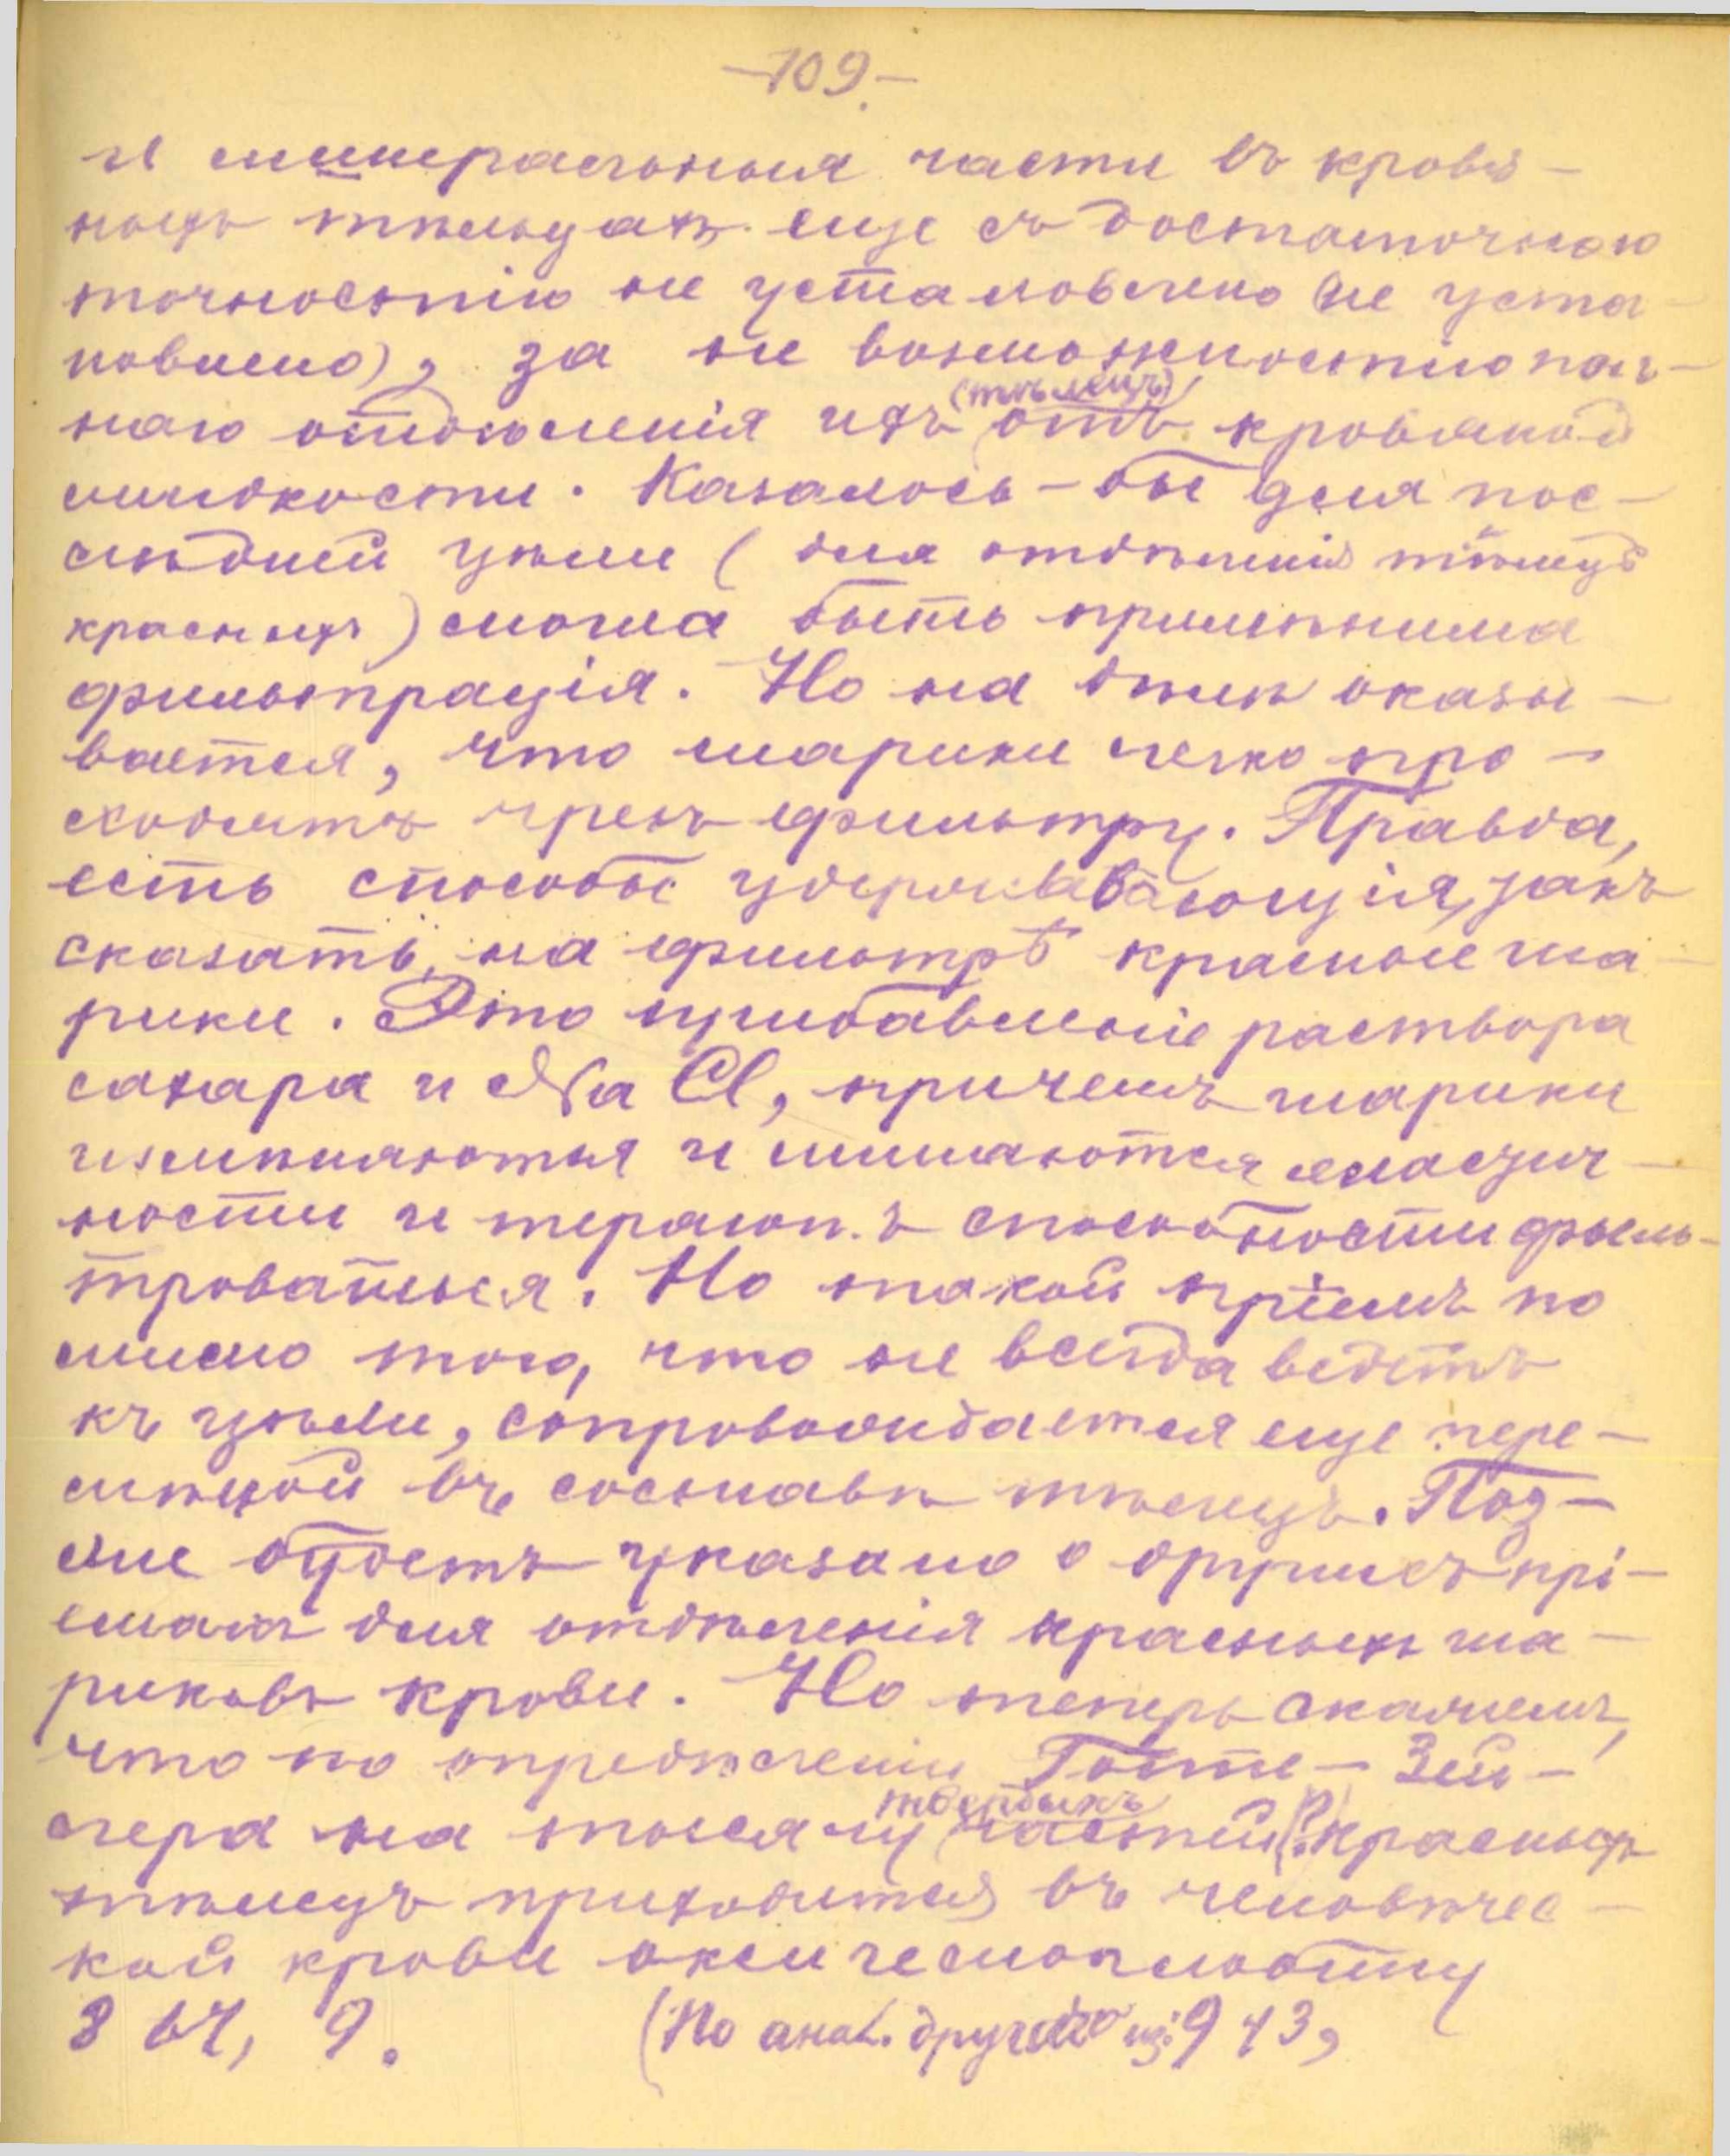 —109.—
и минеральныя части въ кровя-
ныхъ тѣльцахъ еще съ достаточною
точностію не установлено (не уста-
новлено), за не возможностію пол-
наго отдѣленія ихъ (тѣлецъ) отъ кровяной
жидкости. Казалось-бы для пос-
лѣдней цѣли (для отдѣленія тѣлецъ
красныхъ) могла быть примѣнима
фильтрація. Но на дѣлѣ оказы-
вается, что шарики легко про-
ходятъ чрезъ фильтру. Правда,
есть способы удерживающія, такъ
сказать, на фильтрѣ красные ша-
рики. Это прибавленіе раствора
сахара и NaCl, причемъ шарики
измѣняються и лишаются эластич-
ности и теряютъ способности филь-
троваться. Но такой пріемъ по
мимо того, что не всегда ведетъ
къ цѣли, сопровождается еще пере-
мѣной въ составѣ тѣлецъ. Поз-
же будетъ указано о другихъ прі-
емахъ для отдѣленія красныхъ ша-
риковъ крови. Но теперь скажемъ,
что по опредѣленію Гоппе-Зей-
лера на тысячу твердыхъ частей (?) красныхъ
тѣлецъ приходится въ человѣчес-
кой крови оксигемоглобину
867, 9. (По анал. другого из: 943,